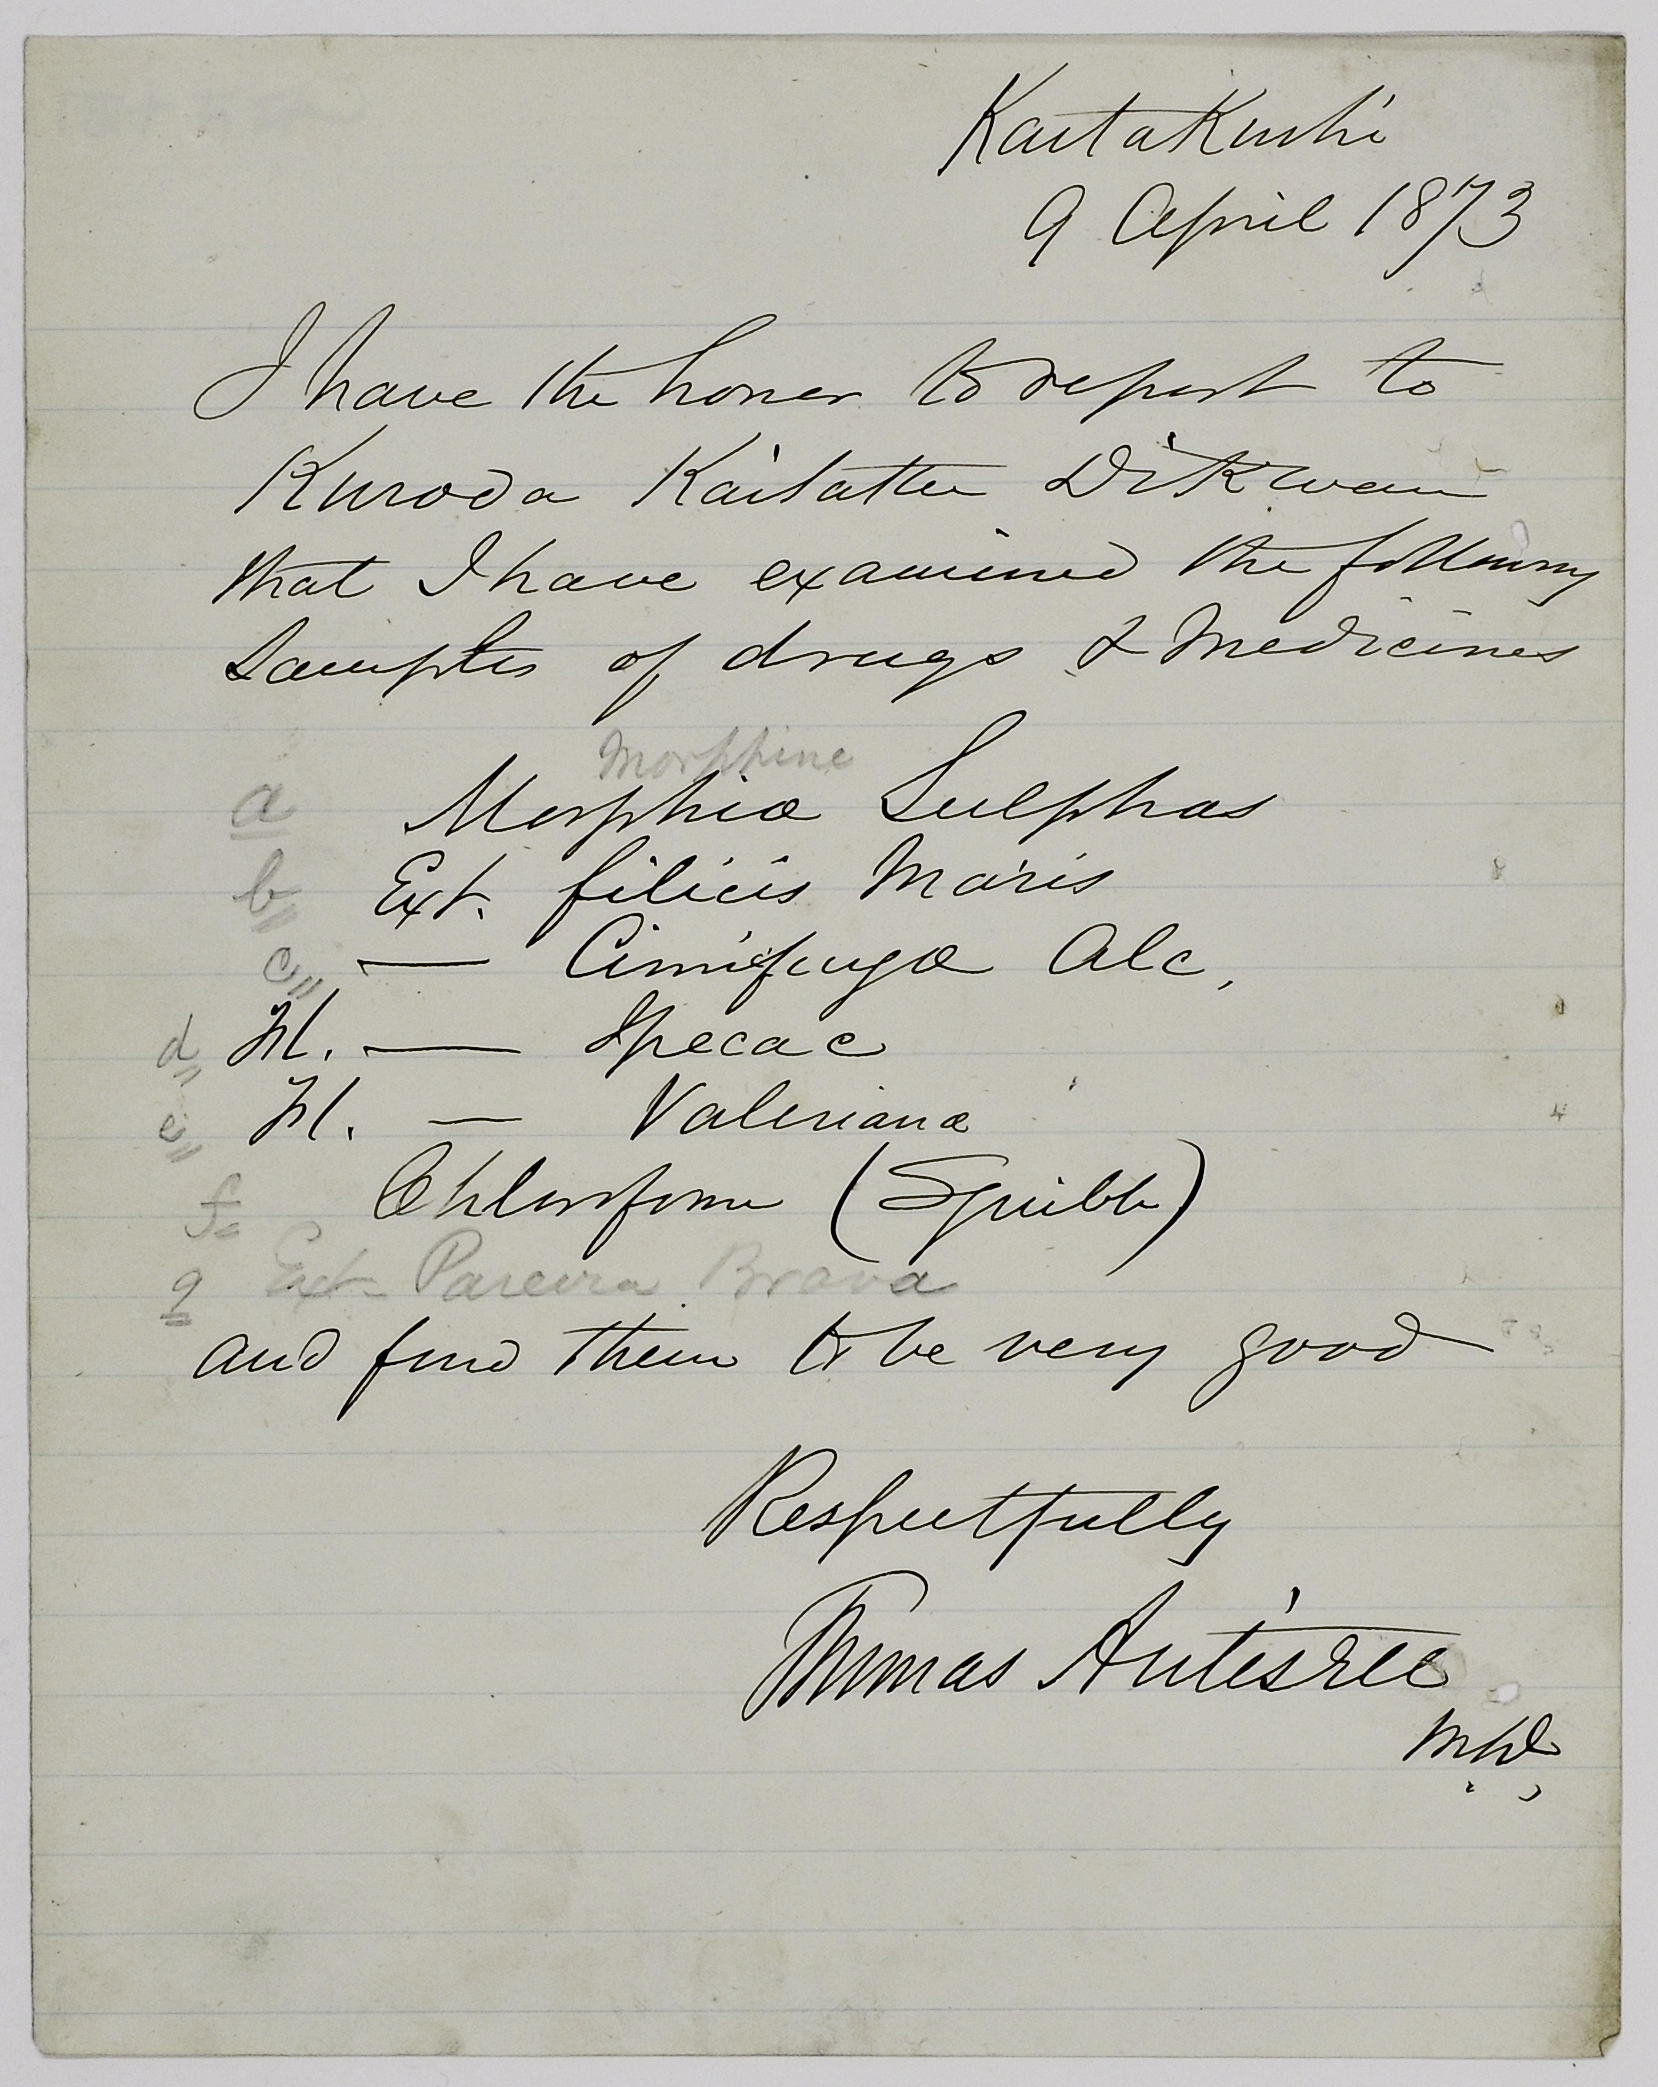 KaitaKushi
9 April 1873
I have the honor to report to
Kuroda Kaitaku DiKwan
that I have examined the following
Samples of drugs & Medicines
Morphine
a Morphiæ Sulphas
b Ext. filicis Maris
c — Cimifugæ Alc.
d Fl. — Ipecac
e Fl. — Valerianæ
f Chloroform (Squibb)
g Ext. Pareira Brava
and find them to be very good
Respectfully
Thomas Antisell
M.D.